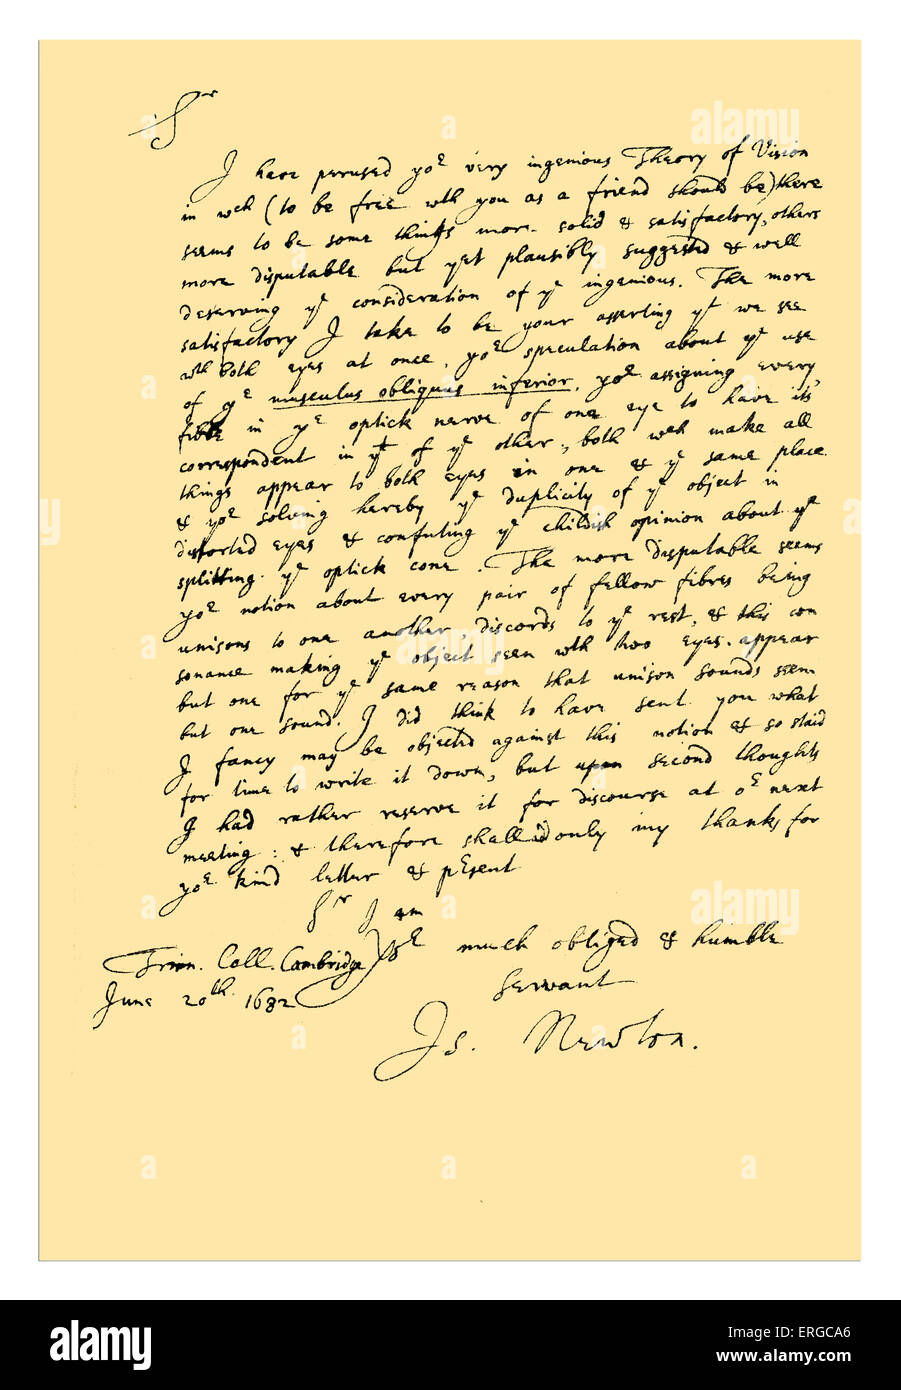 Sr
I have perused yor very ingenious Theory of Vision
in wch (to be free wth you as a friend should be) there
seems to be some things more solid & satisfactory, others
more disputable but yet plausibly suggested & well
deserving ye consideration of ye ingenious. The more
satisfactory I take to be your asserting yt we see
wth both eyes at once, yor speculation about ye use
of ye musculus obliquus inferior, yor assigning every
fibre in ye optick nerve of one eye to have its
correspondent in yt of ye other, both wch make all
things appear to both eyes in one & ye same place
& yor solving hereby ye duplicity of ye object in
distorted eyes & confuting ye childish opinion about ye
splitting ye optick cone. The more disputable seems
yor notion about every pair of fellow fibres being
unisons to one another discords to ye rest, & this con
sonance making ye object seen wth two eyes appear
but one for ye same reason that unison sounds seem
but one sound. I did think to have sent you what
I fancy may be objected against this notion & so staid
for time to write it down, but upon second thoughts
I had rather reserve it for discourse at or next
meeting: & therefore shall add only my thanks for
yor kind letter & present
Sr I am
Trin. Coll. Cambridge Yor much obliged & humble
June 20th 1682 servant
Is. Newton.
alamy
ERGCA6
www.alamy.com